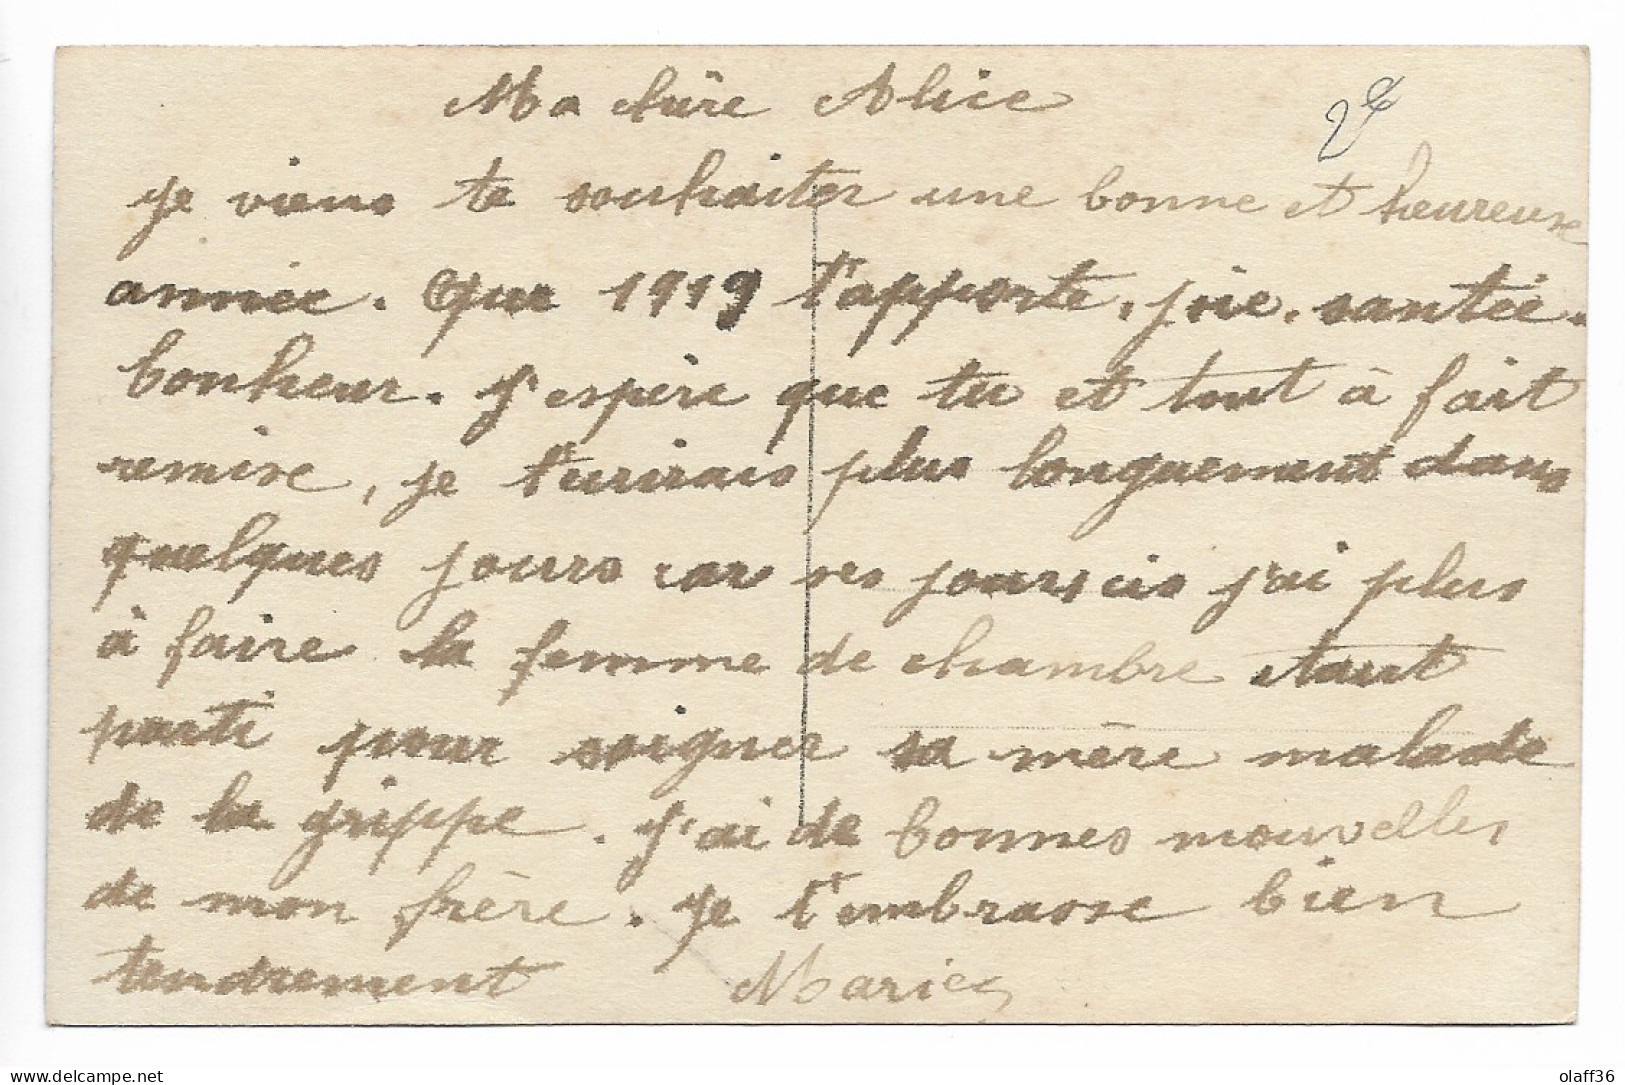 Ma chère Alice
2€
je viens te souhaiter une bonne et heureuse
année. Que 1919 t'apporte, joie, santée.
bonheur. J'espère que tu et tout à fait
remise, je t'ecrirais plus longuement dans
quelques jours car ses jours cis j'ai plus
à faire la femme de chambre étant
parti pour soigner sa mère malade
de la grippe. J'ai de bonnes nouvelles
de mon frère. Je t'embrasse bien
tendrement Marie
delcampe.net
olaff36